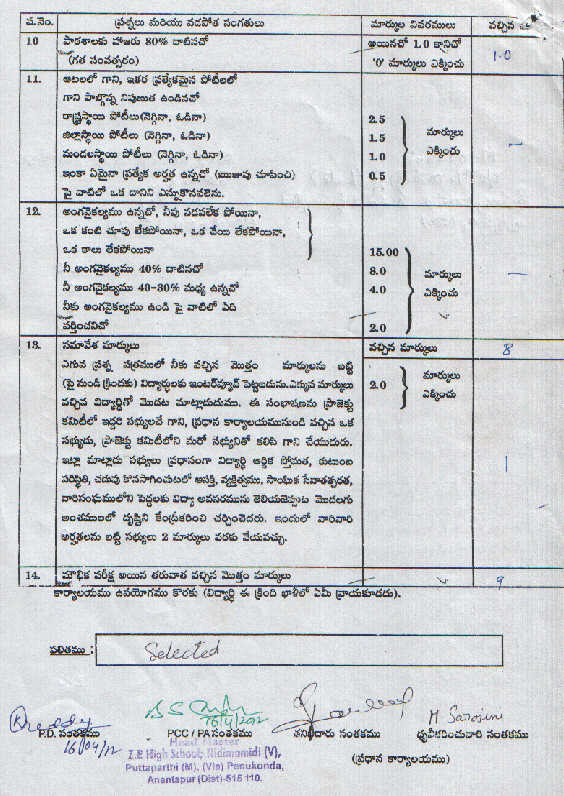 వ.నెం. ప్రశ్నలు మరియు వడపోత సంగతులు మార్కుల వివరములు వచ్చిన
10 పాఠశాలకు హాజరు 80% దాటినచో అయినచో 1.0 కానిచో 1.0
(గత సంవత్సరం) '0' మార్కులు ఎక్కించు
11. ఆటలలో గాని, ఇతర ప్రత్యేకమైన పోటీలలో
గాని పాల్గొన్న నిపుణత ఉండినచో
రాష్ట్రస్థాయి పోటీలు(నెగ్గినా, ఓడినా) 2.5 మార్కులు
జిల్లాస్థాయి పోటీలు (నెగ్గినా, ఓడినా) 1.5 ఎక్కించు
మండలస్థాయి పోటీలు (నెగ్గినా, ఓడినా) 1.0
ఇంకా ఏమైనా ప్రత్యేక అర్హత ఉన్నచో (ఋజువు చూపించి) 0.5
పై వాటిలో ఒక దానిని ఎన్నుకొనవలెను.
12. అంగవైకల్యము ఉన్నచో, నీవు నడవలేక పోయినా,
ఒక కంటి చూపు లేకపోయినా, ఒక చేయి లేకపోయినా,
ఒక కాలు లేకపోయినా 15.00
నీ అంగవైకల్యము 40% దాటినచో 8.0 మార్కులు
నీ అంగవైకల్యము 40-80% మధ్య ఉన్నచో 4.0 ఎక్కించు
నీకు అంగవైకల్యము ఉండి పై వాటిలో ఏది
వర్తించనిచో 2.0
13. సమావేశ మార్కులు వచ్చిన మార్కులు 8
ఎగువ ప్రశ్న పత్రములో నీకు వచ్చిన మొత్తం మార్కులను బట్టి మార్కులు
(పై నుండి క్రిందకు) విద్యార్థులకు ఇంటర్వ్యూవ్ పెట్టబడును.ఎక్కువ మార్కులు 2.0 ఎక్కించు
వచ్చిన విద్యార్థిగో మొదట మాట్లాడుదుము. ఈ సంభాషణను ప్రాజెక్టు
కమిటీలో ఇద్దరి సభ్యులచే గాని, ప్రధాన కార్యాలయమునుండి వచ్చిన ఒక
సభ్యుడు, ప్రాజెక్టు కమిటీలోని మరో సభ్యునితో కలిసి గాని చేయుదురు.
ఇట్లా మాట్లాడు సభ్యులు ప్రధానంగా విద్యార్థి ఆర్థిక స్తోమత, కుటుంబ
పరిస్థితి, చదువు కొనసాగించుటలో ఆసక్తి, వ్యక్తిత్వము, సాంఘిక సేవాతత్పరత,
వారిసంఘములోని పెద్దలకు విద్యా అవసరమును తెలియజెప్పుట మొదలగు
అంశములలో దృష్టిని కేంద్రీకరించి చర్చించెదరు. ఇందులో వారివారి
అర్హతలను బట్టి సభ్యులు 2 మార్కులు వరకు వేయవచ్చు.
14. మౌఖిక పరీక్ష అయిన తరువాత వచ్చిన మొత్తం మార్కులు 9
కార్యాలయము ఉపయోగము కొరకు (విద్యార్థి ఈ క్రింది ఖాళీలో ఏమీ వ్రాయకూడదు).
ఫలితము : Selected
16/4/2012
M Sarojini
P.D. సంతకము PCC / PA సంతకము తనిఖీదారు సంతకము ధృవీకరించువారి సంతకము
16/04/12
Head Master
Z.P. High School; Nidimamidi (V), (ప్రధాన కార్యాలయము)
Puttaparthi (M), (Via) Penukonda,
Anantapur (Dist)-515 110.